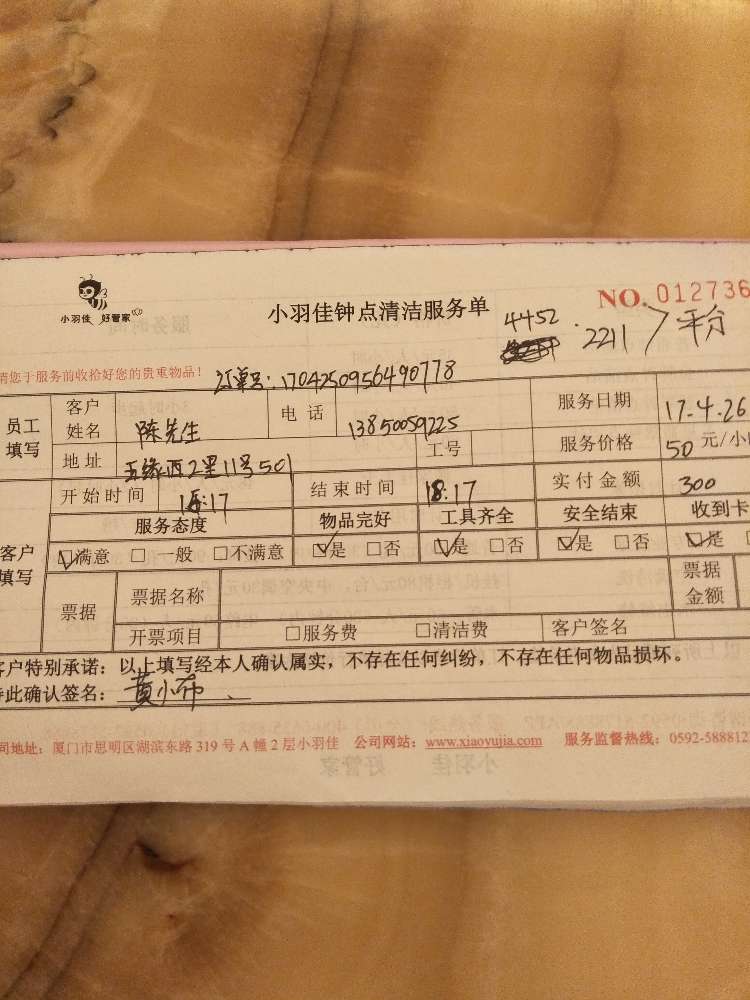 小羽佳 好管家
小羽佳钟点清洁服务单
NO. 012736
4452 · 2211 平分
请您于服务前收拾好您的贵重物品!
订单号: 170425095640778
员工填写 客户姓名 陈先生 电话 13850059225 服务日期 17.4.26
地址 五缘西2里11号501 工号 服务价格 50元/小
开始时间 15:17 结束时间 18:17 实付金额 300
客户填写 服务态度 物品完好 工具齐全 安全结束 收到卡
☑满意 □一般 □不满意 ☑是 □否 ☑是 □否 ☑是 □否 ☑是 □
票据 票据名称 票据金额
开票项目 □服务费 □清洁费 客户签名
客户特别承诺: 以上填写经本人确认属实, 不存在任何纠纷, 不存在任何物品损坏。
特此确认签名: 黄小布
司地址: 厦门市思明区湖滨东路 319 号 A 幢 2 层小羽佳 公司网站: www.xiaoyujia.com 服务监督热线: 0592-588812